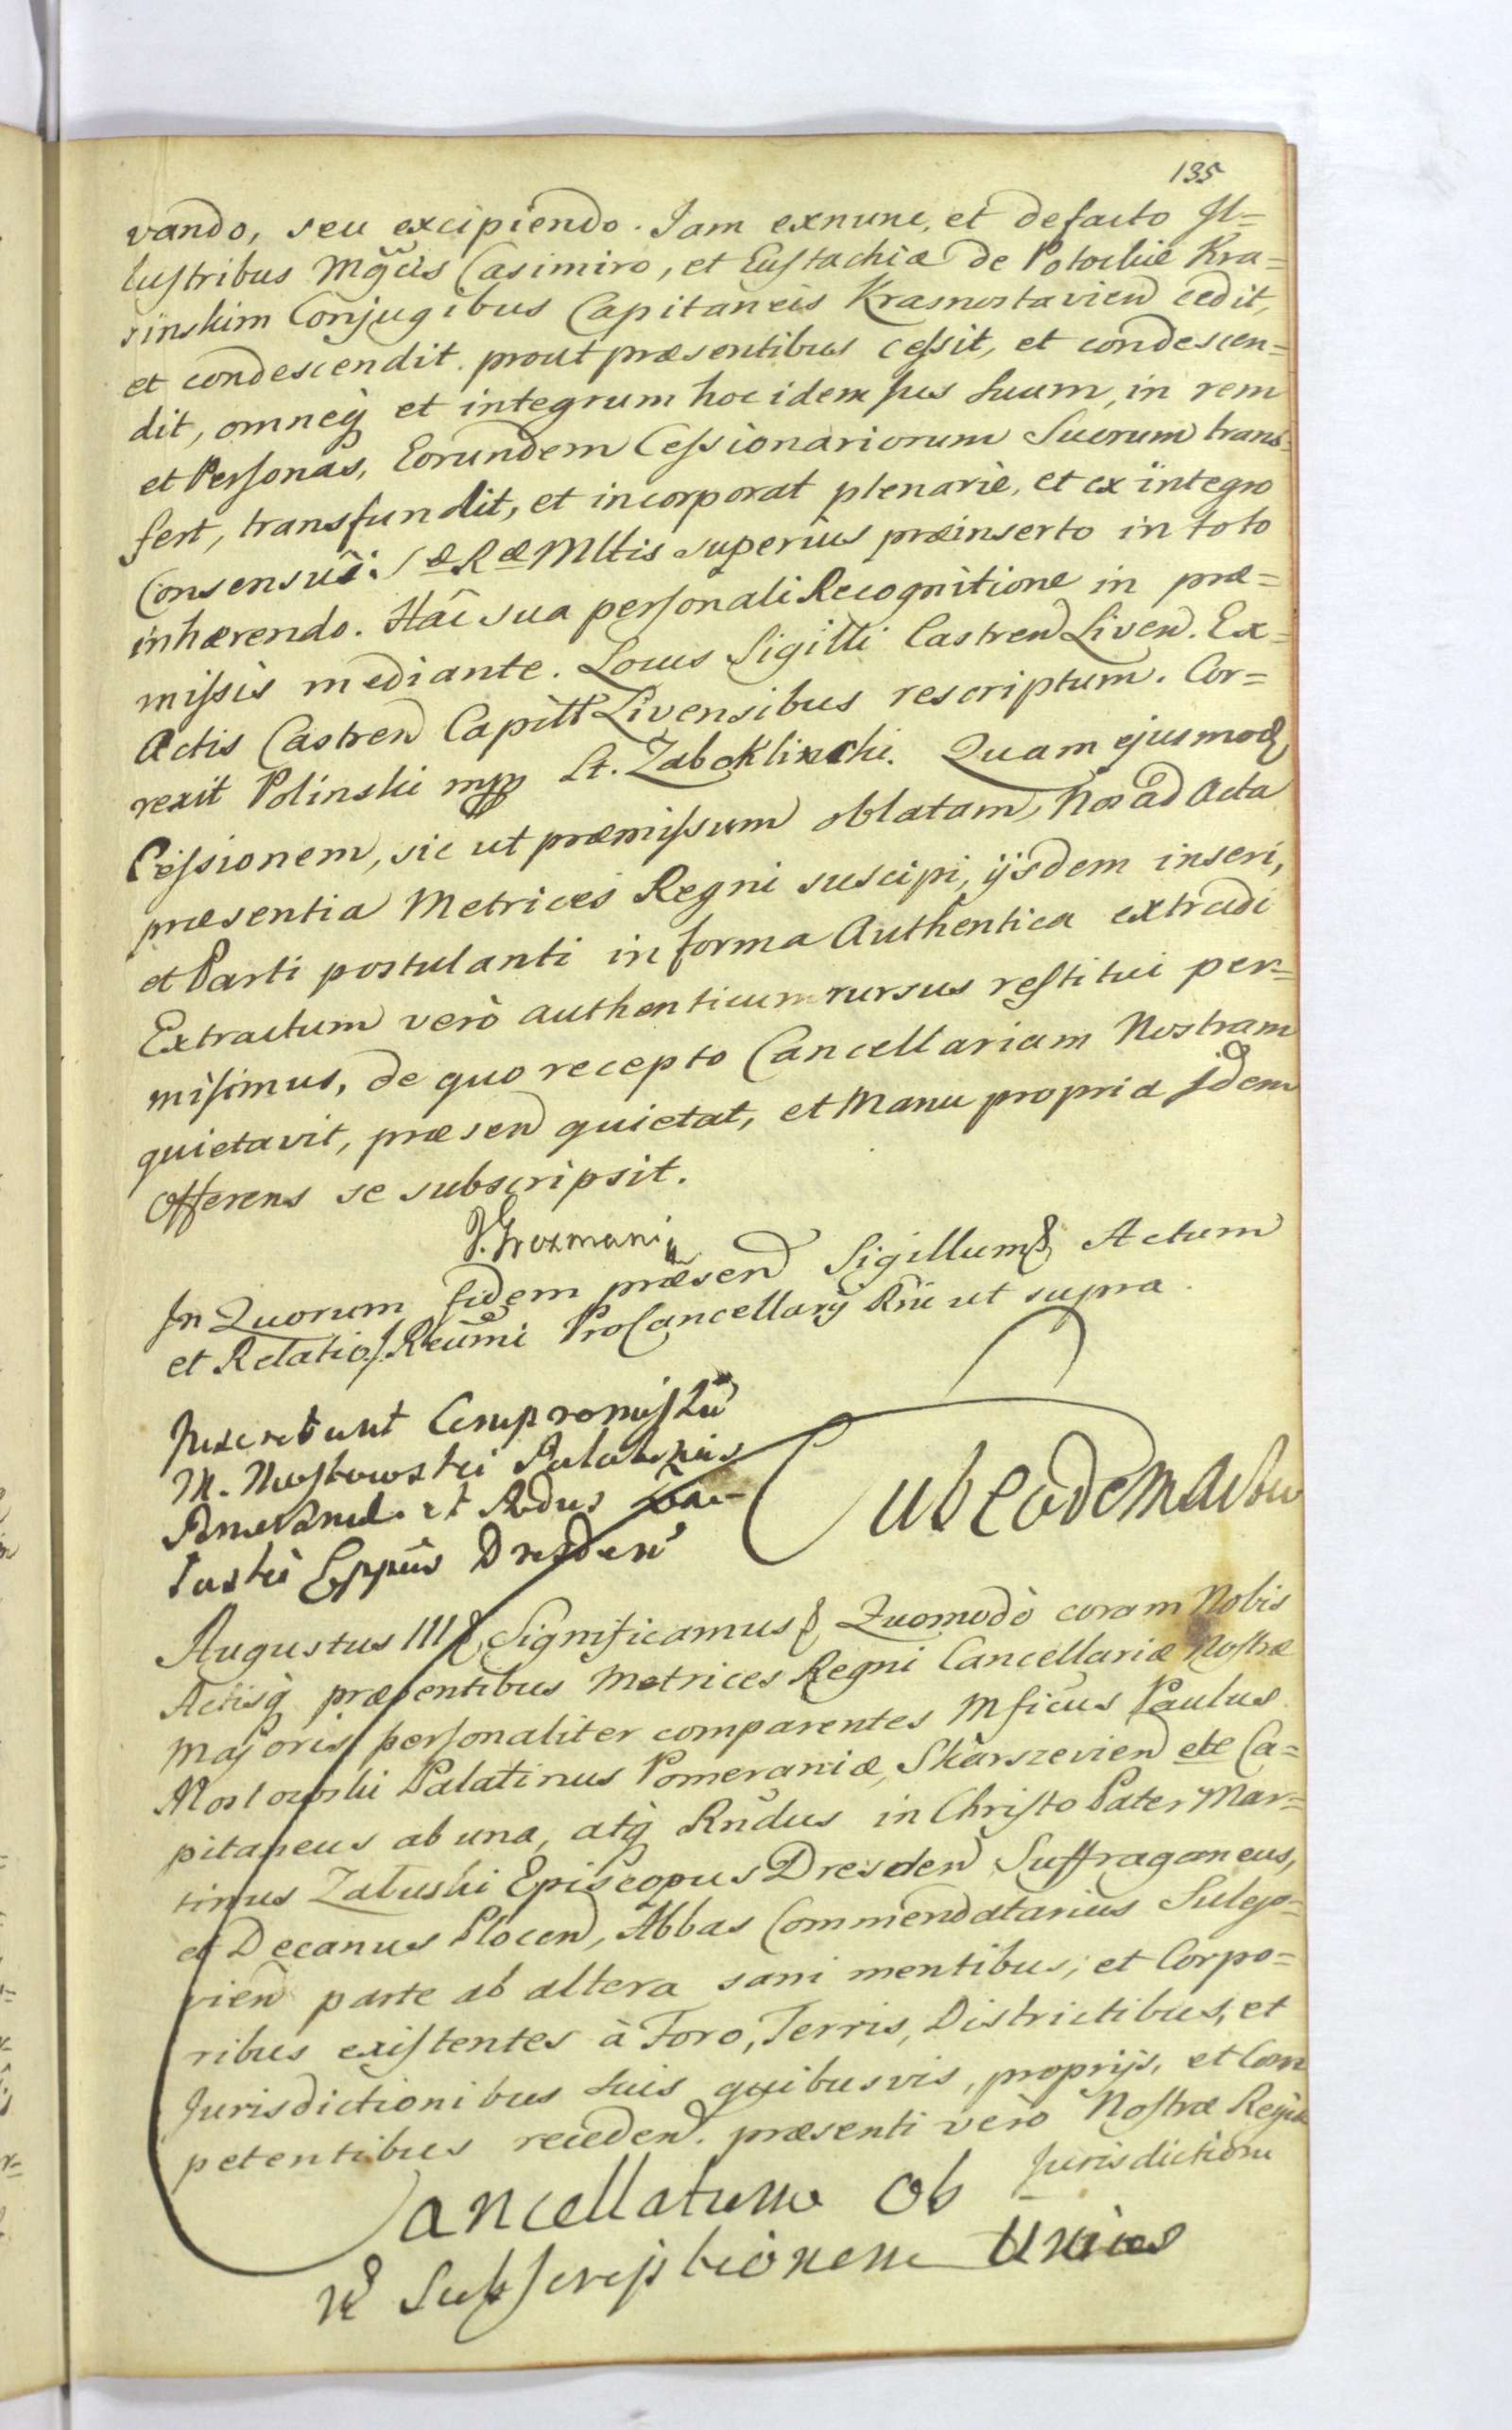 135
vando, seu excipiendo. Jam exnunc, et defacto Il=
lustribus Mgcis Casimiro, et Eustachiæ de Potockie Kra=
sinskim Conjugibus Capitaneis Krasnostavien cedit,
et condescendit. prout præsentibus cessit, et condescen=
dit, omneq et integrum hoc idem Jus suum, in rem
et Personas, Eorundem Cessionariorum Suorum trans=
fert, transfundit, et incorporat plenariè, et ex integro
Consensui S æ R æ Mttis superius præinserto in toto
inhærendo. Hac sua personali Recognitione in præ=
missis mediante. Locus Sigilli Castren Liven. Ex=
Actis Castren Capitt Livensibus rescriptum. Cor=
rexit Polinski mpp St. Zaboklicki. Quam ejusmodi
Cessionem, sic ut præmissum oblatam, Nos ad Acta
præsentia Metrices Regni suscipi, ijsdem inseri,
et Parti postulanti in forma Authentica extradi
Extractum verò authenticum rursus restitui per=
misimus, de quo recepto Cancellariam Nostram
quietavit, præsen quietat, et Manu propria Idem
Offerens se subscripsit.
J. Grozmani
In Quorum fidem præsen Sigillum& Actum
et Relatio J. Reumi ProCancellarij Rni ut supra.
Inscribunt Compromissu
M. Mostowski Palatinus
Pomeran. et Rndus Za-
luski Eppus Dresden
Sub eodem Actu
Augustus III& Significamus& Quomodò coram Nobis
Actisq præsentibus Metrices Regni Cancellariæ Nostræ
Majoris personaliter comparentes Mficus Paulus
Mostowski Palatinus Pomeraniæ, Skarszevien etc Ca=
pitaneus ab una, atq Rndus in Christo Pater Mar=
tinus Zaluski Episcopus Dresden Suffraganeus,
et Decanus Plocen, Abbas Commendatarius Sulejo=
vien parte ab altera sani mentibus, et Corpo=
ribus existentes à Foro, Terris, Districtibus, et
Jurisdictionibus suis quibusvis, proprijs, et Com
petentibus receden. præsenti verò Nostræ Regiæ
Jurisdictioni
Cancellatum ob
Subscriptionem Unius